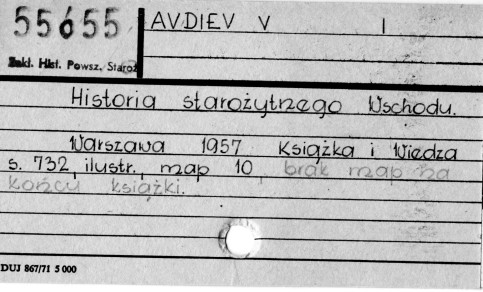 55655
AVDIEV V I
Zakl. Hist. Powsz. Staroż
Historia starożytnego Wschodu.
Warszawa 1957 Książka i Wiedza
s. 732, ilustr., map 10 brak map na
końcu książki.
DUJ 867/71 5 000